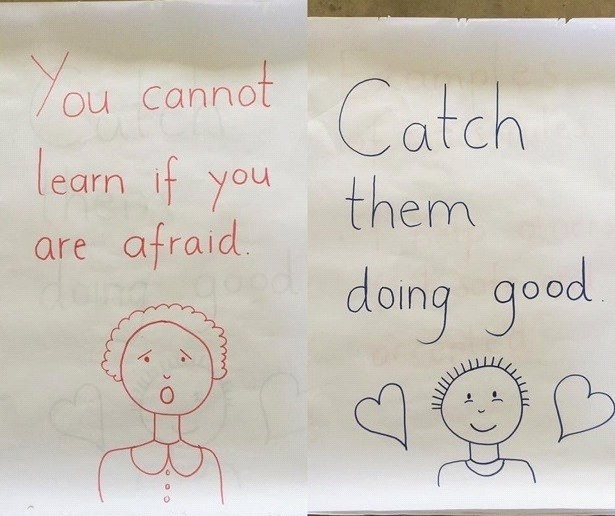 You cannot
learn if you
are afraid.
Catch
them
doing good.